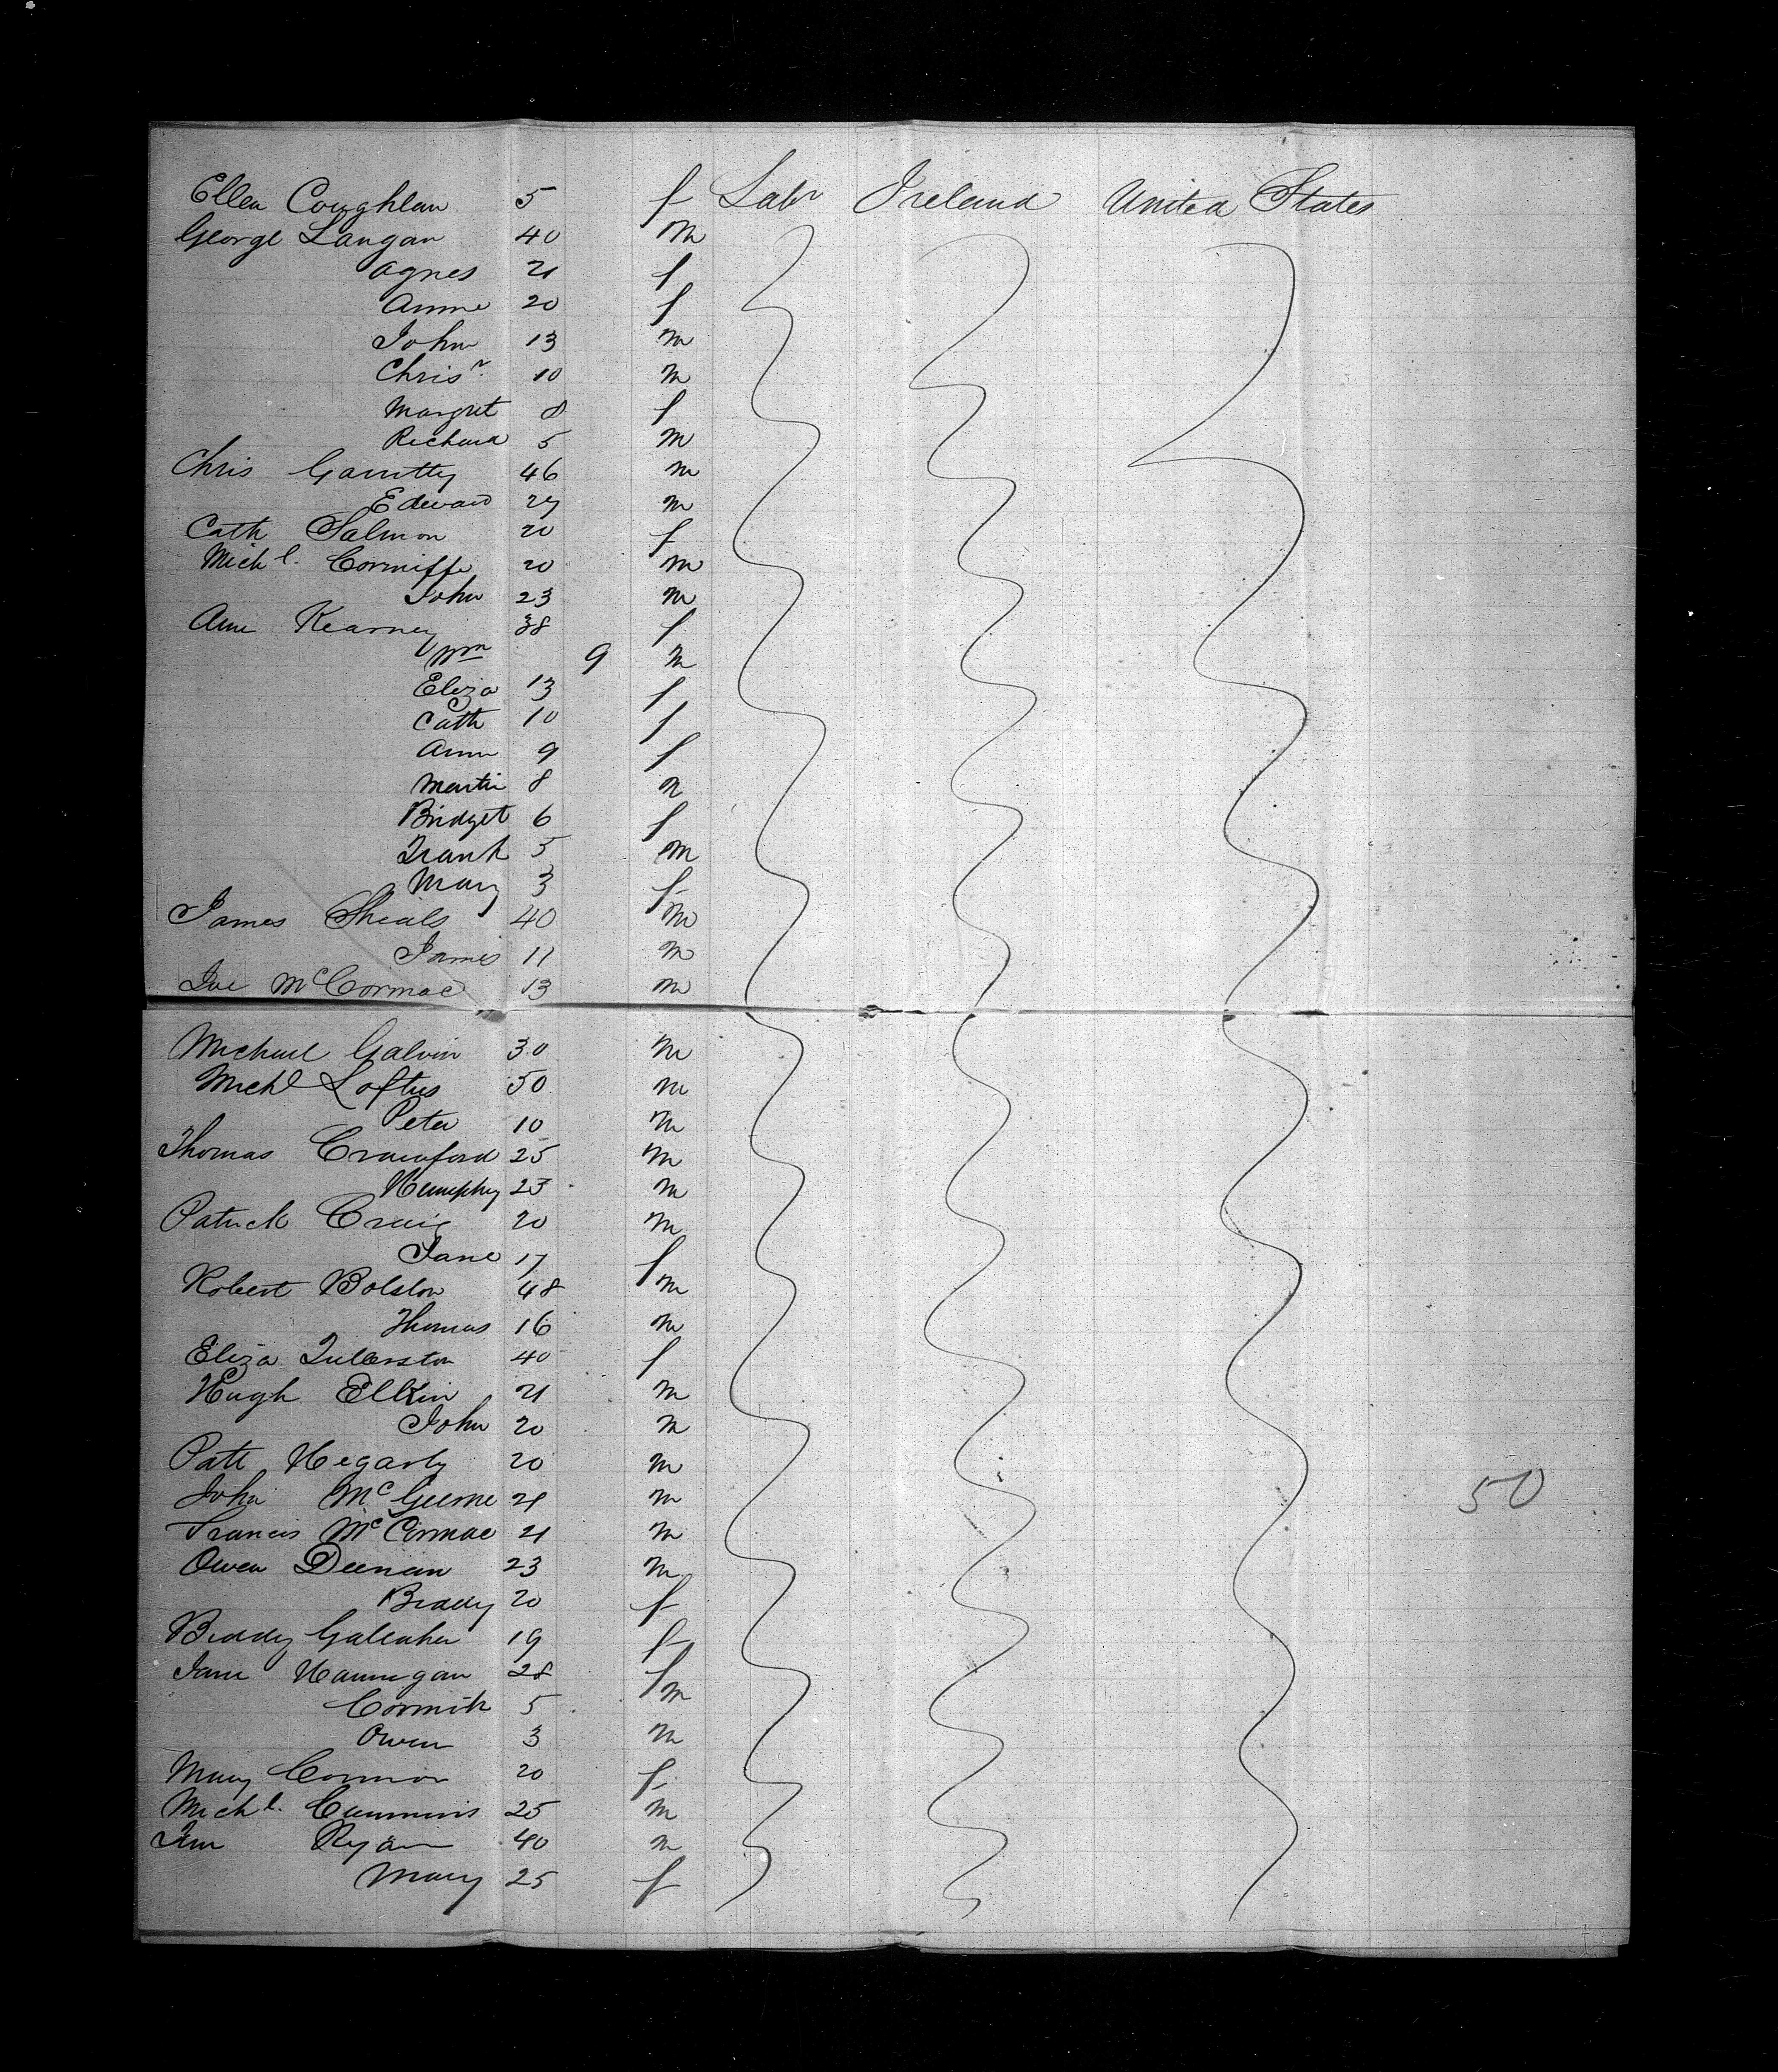 Ellen Coughlan 5 f Labr Ireland United States
George Langan 40 m
Agnes 21 f
Anne 20 f
John 13 m
Chrisr. 10 m
Margret 8 f
Richard 5 m
Chris Garritty 46 m
Edward 27 m
Cath Salmon 20 f
Michl. Cormiffe 20 m
John 23 m
Ann Kearney 38 f
Wm 9 m
Eliza 13 f
Cath 10 f
Ann 9 f
Martin 8 m
Bridget 6 f
Frank 5 m
Mary 3 f
James Sheals 40 m
James 11 m
Joe McCormac 13 m
Michael Galvin 30 m
Michl Loftus 50 m
Peter 10 m
Thomas Crawford 25 m
Humphry 23 m
Patrick Craig 20 m
Jane 17 f
Robert Bolston 48 m
Thomas 16 m
Eliza 40 f
Hugh Elkin 21 m
John 20 m
Patt Hegarty 20 m
John 21 m 50
Francis McCormac 21 m
Owen Deenan 23 m
Biddy 20 f
Biddy Gallaher 19 f
Jane Hannigan 28 f
Cormick 5 m
Owen 3 m
Mary Connor 20 f
Michl. Cummins 25 m
Tim Ryan 40 m
Mary 25 f